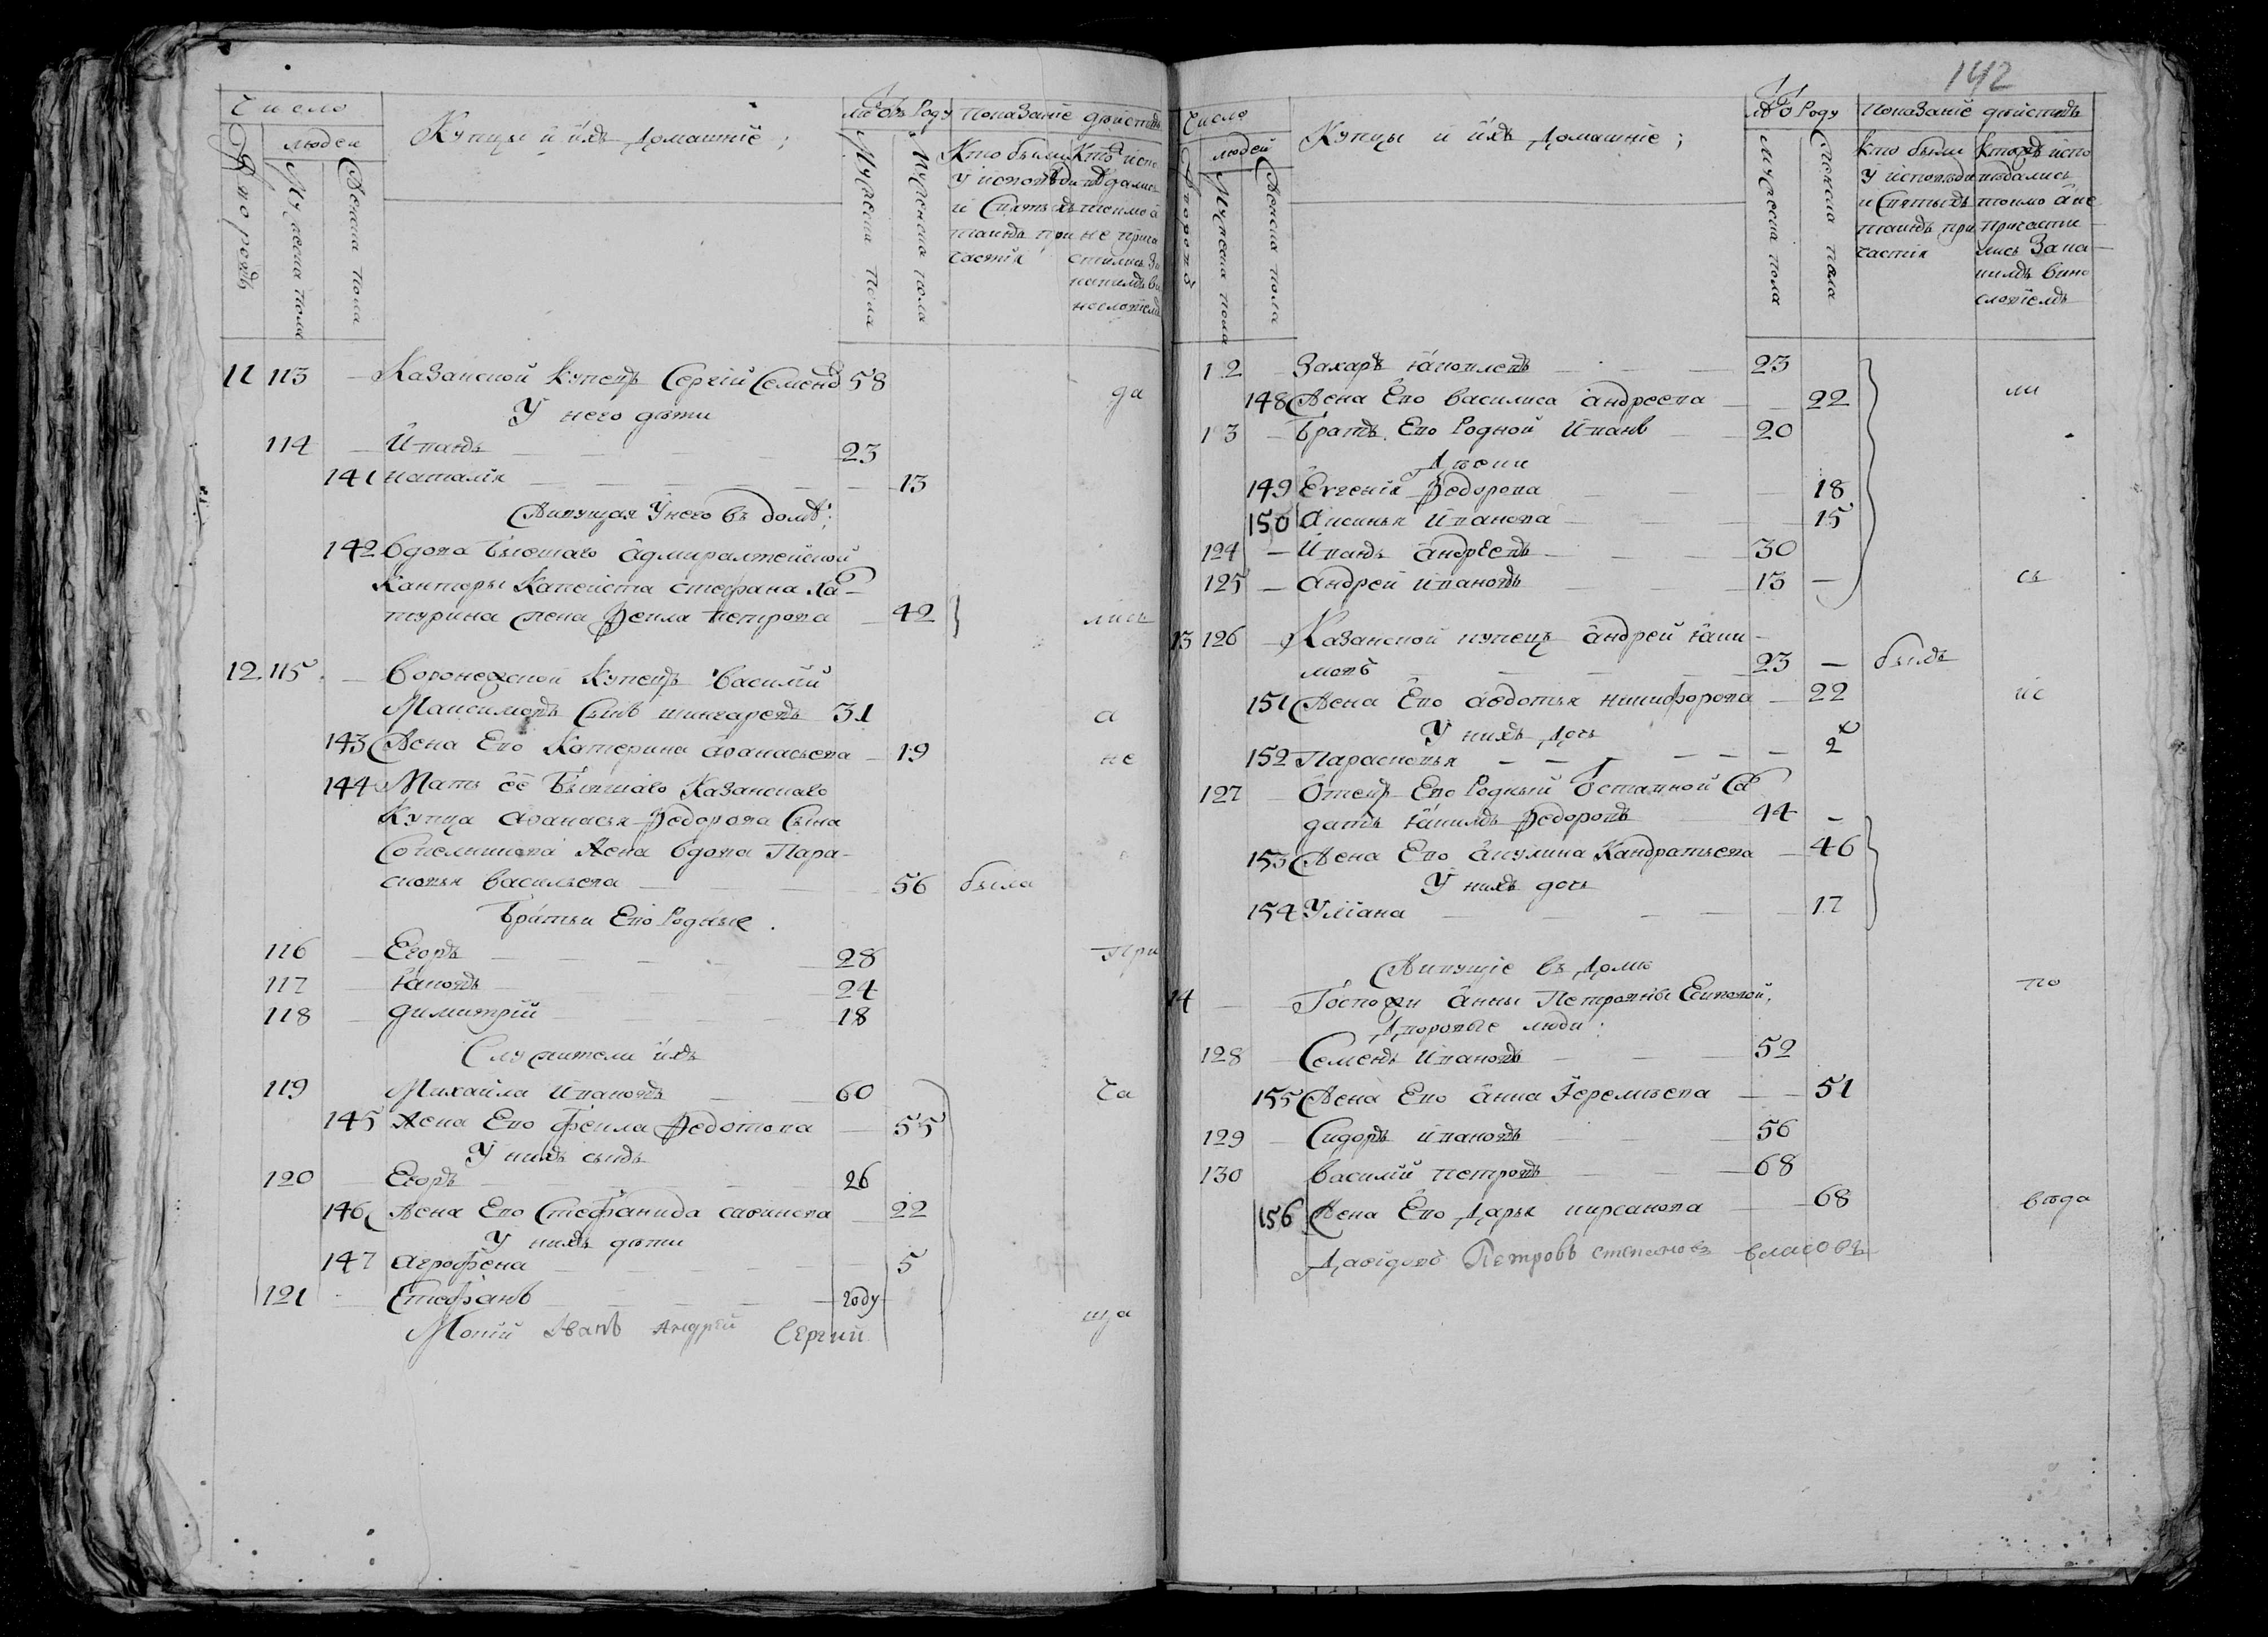 142
Число
людей
Дворовъ
Мужеска пола
Женска пола
Купцы и ихъ домашнїе;
Мужеска пола
Женска пола
Показанїе дѣйствъ
Кто были
у исповѣди
и Святыхъ
таинъ при
частїя
11 113 — Казанской купецъ Сергїй Семенов 58 да
У него дѣти
114 — Иванъ 23
141 Наталїя 13
Живущая у него въ домѣ;
142 Вдова бывшаго адмиралтейской
Канторы Капеиста Стефана Ла-
турина жена Фекла Петрова 42 лись
12. 115. — Воронежской купецъ Василїй
Максимовъ сынъ Шингаревъ 31 а
143 Жена Ево Катерина Афанасьева 19 не
144 Мать её бывшаго Казанскаго
Купца Афанасья Федорова сына
Жена вдова Пара-
сковья Васильева 56 была
Братьи Ево Родные.
116 — Егоръ 28 При
117 — Яковъ 24
118 — Димитрїй 18
Служители ихъ
119 Михайла Ивановъ 60 ча
145 Жена Ево Фекла Федотова 55
У нихъ сынъ
120 — Егоръ 26
146 Жена Ево Стефанида Савинова 22
У нихъ дѣти
147 Агрофена 5
121 — Стефанъ году
Иванъ Андрей Сергий ща
Число
людей
Мужеска пола
Женска пола
Купцы и ихъ домашнїе;
Мужеска пола
Женска пола
Показанїе дѣйствъ
кто были
у исповѣди
и Святыхъ
таинъ при
частїя
исповѣдались
токмо а не
причасти
лись
12 — Захаръ Яковлевъ 23
148 Жена Ево Василиса Андреева 22 ли
13 — Братъ Ево Родной Иванъ 20
149 Евгенїя Федорова 18
150 Аксинья Иванова 15
124 — Иванъ Андреевъ 30
125 — Андрей Ивановъ 13 — сь
13 126 — Казанской купецъ Андрей Яки-
мовъ 23 — былъ
151 Жена Ево Авдотья Никифорова — 22 ис
У нихъ дочь
152 Парасковья 2
127 — Отецъ Ево Родный Отставной Сол
датъ Якимъ Федоровъ 44 —
153 Жена Ево Акулина Кандратьева — 46
У нихъ дочь
154 Улїана 17
Живущїе въ домѣ
14 — Госпожи Анны Петровны Есиповой, по
Дворовые люди:
128 — Семенъ Ивановъ 52
155 Жена Ево Анна Iеремѣева 51
129 — Сидоръ Ивановъ 56
130 Василїй Петровъ 68
156 Жена Ево Дарья Кирсанова 68 вѣда
Давидовъ Петровъ Степановъ Власовъ